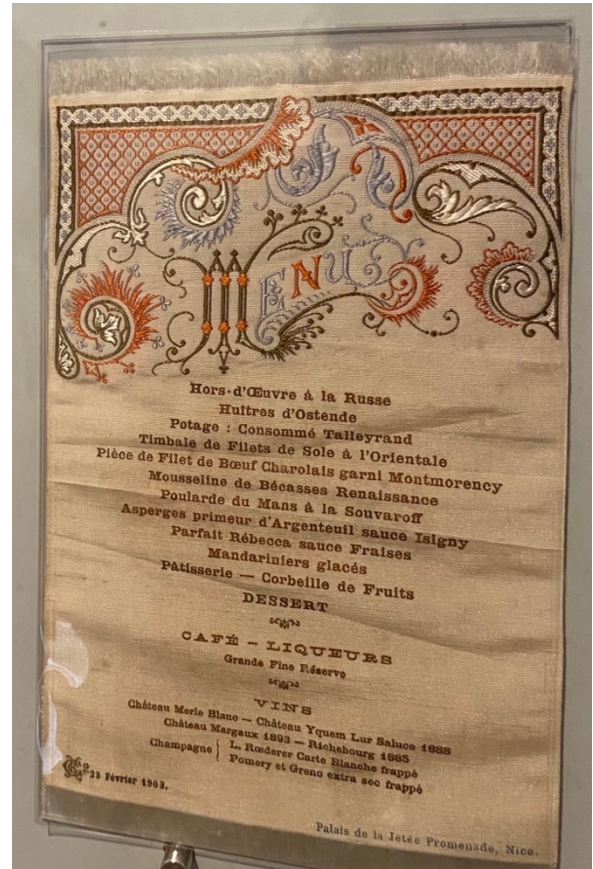 MENU
Hors-d'Œuvre à la Russe
Huîtres d'Ostende
Potage : Consommé Talleyrand
Timbale de Filets de Sole à l'Orientale
Pièce de Filet de Bœuf Charolais garni Montmorency
Mousseline de Bécasses Renaissance
Poularde du Mans à la Souvaroff
Asperges primeur d'Argenteuil sauce Isigny
Parfait Rébecca sauce Fraises
Mandariniers glacés
Pâtisserie — Corbeille de Fruits
DESSERT
CAFÉ - LIQUEURS
Grande Fine Réserve
VINS
Château Merle Blanc — Château Yquem Lur Saluce 1888
Château Margaux 1893 — Richebourg 1885
Champagne { L. Rœderer Carte Blanche frappé
Pomery et Greno extra sec frappé
23 Février 1903.
Palais de la Jetée Promenade, Nice.